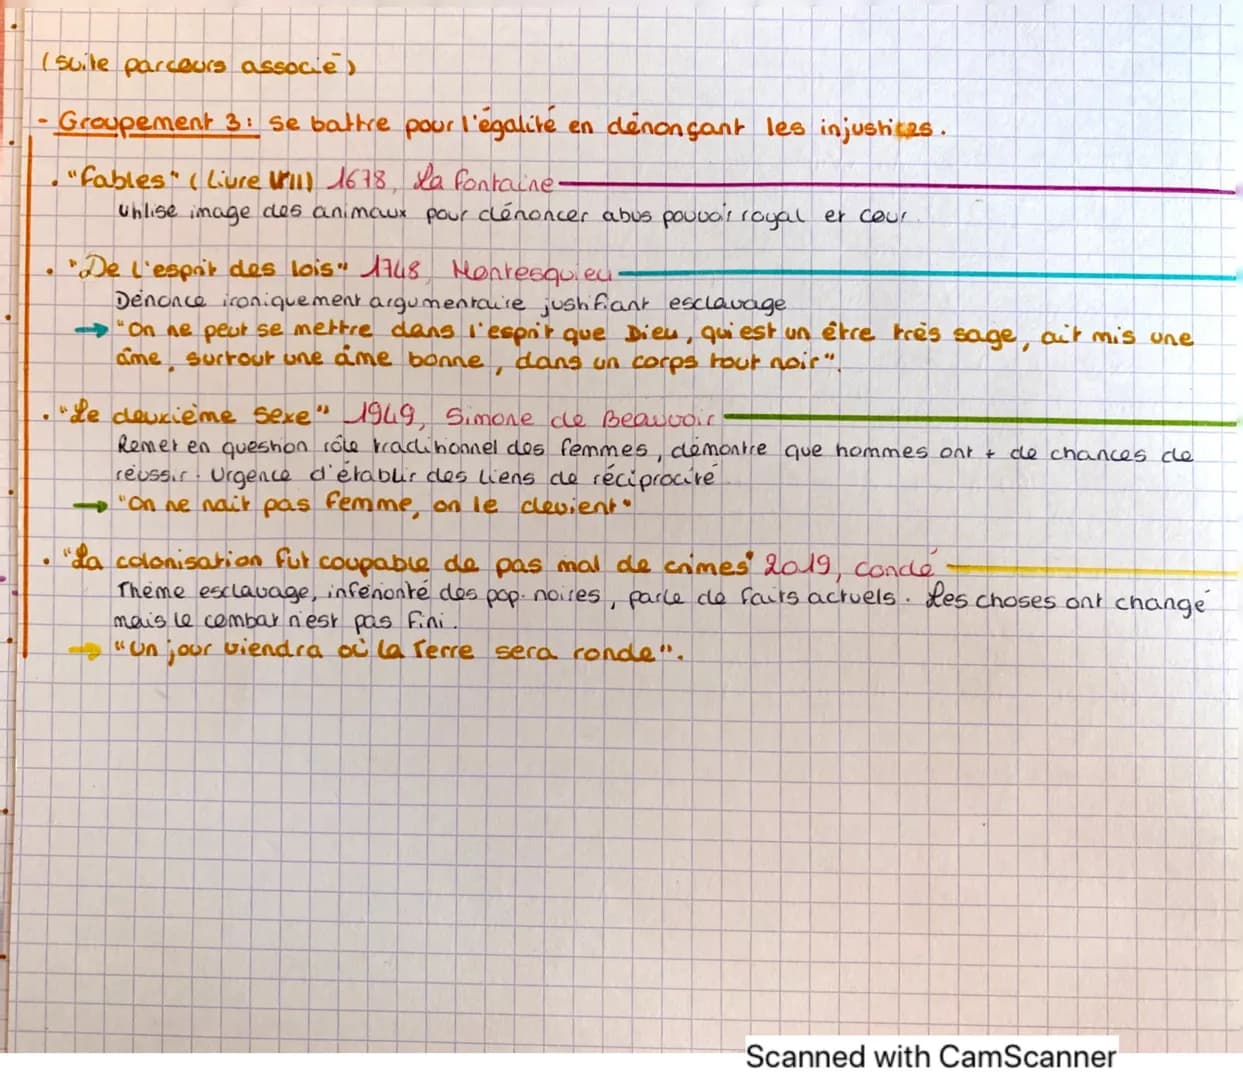 (suite parcours associé)
- Groupement 3 : se battre pour l'égalité en dénonçant les injustices.
. "Fables" (Livre VIII) 1678, La Fontaine
Utilise image des animaux pour dénoncer abus pouvoir royal et cour
. "De l'esprit des lois" 1748, Montesquieu
Dénonce ironiquement argumentaire justifiant esclavage
→ "On ne peut se mettre dans l'esprit que Dieu, qui est un être très sage, ait mis une
âme, surtout une âme bonne, dans un corps tout noir".
. "Le deuxième Sexe" 1949, Simone de Beauvoir
Remet en question rôle traditionnel des femmes, démontre que hommes ont + de chances de
réussir. Urgence d'établir des liens de réciprocité
→ "On ne nait pas femme, on le devient"
. "La colonisation fut coupable de pas mal de crimes" 2019, Condé
Thème esclavage, infériorité des pop. noires, parle de faits actuels. Les choses ont changé
mais le combat n'est pas fini.
→ "Un jour viendra où la Terre sera ronde".
Scanned with CamScanner